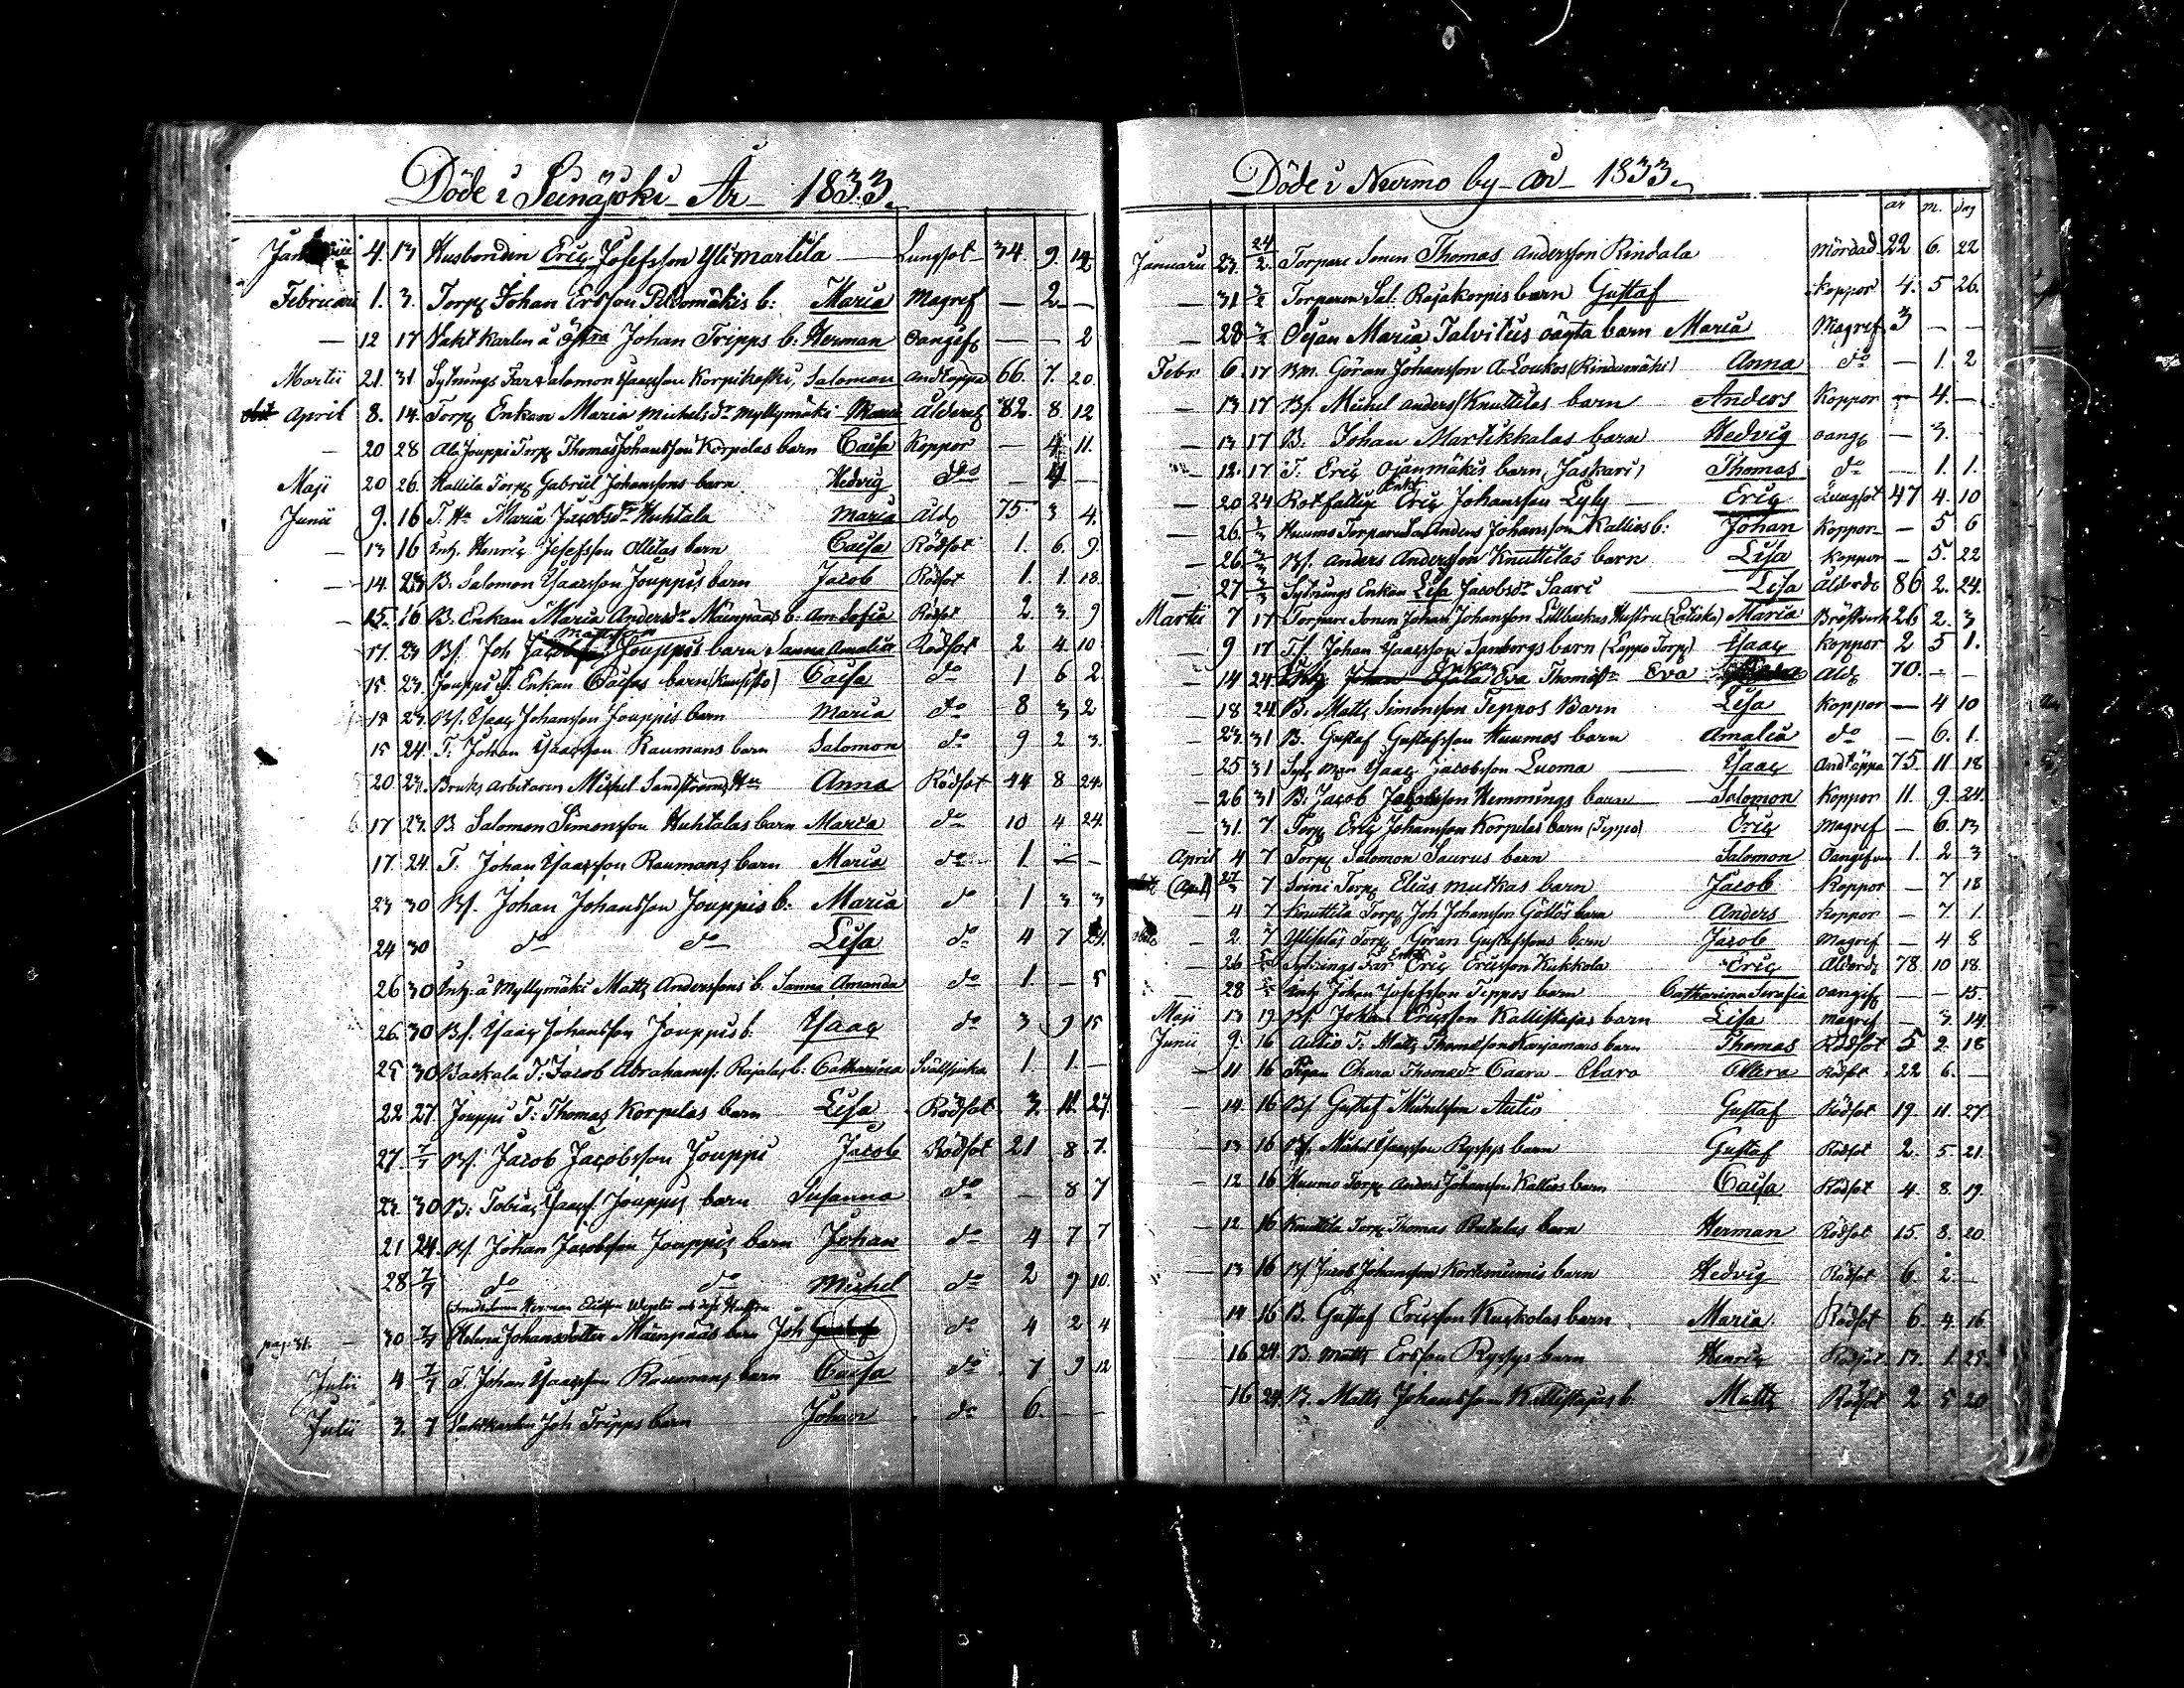 Döde i Seinäjoki År 1833.
Januarii 4. 13 Husbonden Eric Josefsson Ylimartila Lungsot 34. 9. 12
Februari 1. 3. Torp Johan Ersson Peltomäkis b: Maria Magref — 2 —
— 12 17 Vakt Karlen å Östra Johan Tripps b: Herman oangif — — 2
Martii 21. 31. Sytnings Far Salomon Isacsson Korpikoski, Salomon andtäppa 66. 7. 20.
April 8. 14. Torp Enkan Maria Michelsdr Myllymäki Maria ålderd 82. 8 12
— 20 28 Ala Jouppi Torp Thomas Johansson Korpelas barn Caisa Koppor — 4 11.
Maji 20 26. Kallila Torp Gabriel Johanssons barn Hedvig do — 4 —
Junii 9. 16 T. Hu Maria Jacobsdr Huhtala Maria åld 75 3 4.
— 13 16 Inh. Henric Josefsson Ollilas barn Caisa Rödsot 1. 6. 9.
— 14. 23 B. Salomon Isacsson Jouppis barn Jacob Rödsot 1. 1. 18.
— 15. 16 B. Enkan Maria Andersdr Mäenpääs b: Ann Sofia Rödsot 2 3. 9
17. 23 Bs. Joh Mattsson Jouppis barn Sanna Amalia Rödsot 2 4 10
15. 23. Jouppi T. Enkan Caisas barn (Kuusisto) Caisa do 1 6 2.
15 23. Bs. Isaac Johansson Jouppis barn Maria do 8 3 2
15 24. T. Johan Isacsson Raumans barn Salomon do 9 2 3.
20. 23. Bruks arbetaren Michel Sandströms Hu Anna Rödsot 44 8 24.
17 23. B. Salomon Simonsson Huhtalas barn Maria do 10 4 24.
17. 24. T. Johan Isacsson Raumans barn Maria do 1. — —
23 30 Bs. Johan Johansson Jouppis b: Maria do 1 3 3
24 30 do do Lisa do 4 7 24.
26 30 Inh. å Myllymäki Matts Anderssons b. Sanna Amanda do 1. — 5
26. 30 Bs. Isaac Johansson Jouppis b. Isaac do 3 9 15
25 30 T. Jacob Abrahams. Rajalas b. Catharina 1. 1. —
22 27 Jouppi T: Thomas Korpelas barn Lisa Rödsot 3. 11. 27.
27. 7/7 Bs. Jacob Jacobsson Jouppi Jacob Rödsot 21 8. 7.
23. 30 B: Tobias Isacs. Jouppis barn Susanna do — 8 7
21 24. Bs. Johan Jacobsson Jouppis barn Johan do 4 7 7
28 7/7 do do Michel do 2 9 10.
pag. 31. — 30 7/7 Helena Johansdotter Mäenpääs barn Joh do 4 2 4
Julii 4 7/7 T. Johan Isacsson Raumans barn Caisa do 7 9 12
Julii 3. 7 Vaktkarlen Joh Tripps barn Johan do 6. — —
Döde i Nurmo by år 1833.
år m. dag
Januarii 23. 24/2. Torpare Sonen Thomas Andersson Rindala Mördad 22 6. 22
— 31 3/2 Torparen Sal. Rajakorpis barn Gustaf Koppor 4. 5 26.
— 28 3/2 Pigan Maria Talvitis oägta barn Maria Magref 3 — —
Febr. 6. 17 Bm. Göran Johansson A-Loukos (Rindamäki) Anna do — 1. 2
— 13 17 Bs. Michel Anders Knuttilas barn Anders Koppor — 4. —
— 13 17 B. Johan Martikkalas barn Hedvig oang — 3. —
— 12. 17 T. Eric Ojanmäkis barn (Jaskari) Thomas do — 1. 1.
— 20 24 Rotfattige Enkl Eric Johansson Lyly Eric Lungsot 47 4. 10
— 26. 3/3 Huumo Torparen Anders Johansson Kallios b: Johan Koppor — 5 6
— 26. 3/3 Bs. Anders Andersson Knuttilas barn Lisa Koppor — 5. 22
— 27 3/3 Sytnings Enkan Lisa Jacobsdr Saari Lisa ålderdo 86 2. 24.
Martii 7 17 Torpare Sonen Johan Johansson Hustru Maria 26 2. 3
— 9 17 T.f. Johan Isacsson Sanborgs barn (Lappo Torp) Isaac Koppor 2 5 1.
— 14 24 Enkan Eva Thomasdr Eva Åld 70. — —
— 18 24. B. Matts Simonsson Teppos Barn Lisa Koppor — 4 10
— 23. 31 B. Gustaf Gustafsson Huumos barn Amalia do — 6. 1.
— 25 31 Syt Man Isaac Jacobsson Luoma Isaac Andtäppa 75. 11 18
— 26 31 B. Jacob Jacobsson Hemmings barn Salomon Koppor 11. 9. 24.
— 31. 7 Torp Eric Johansson Korpelas barn (Teppo) Eric Magref — 6. 13
April 4 7 Torp Salomon Saurus barn Salomon Oangifven 1. 2 3
(April) 27/3 7 Soini Torp Elias Mutkas barn Jacob Koppor — 7 18
— 4 7 Knuttila Torp Joh Johansson barn Anders Koppor — 7. 1.
— 2 7 Torp Göran Gustafssons barn Jacob Magref — 4 8
— 26 Sytnings Far Enkl Eric Ericsson Kukkola Eric Ålderd 78 10 18.
— 28 Inh Johan Josefsson Teppos barn Catharina Serafia oangif — — 15.
Maji 13 19 Bs. Johan Ericsson Kallistajas barn Lisa Magref — 3. 14.
Junii 9. 16 Autio T. Matts Thomasson Karjamaas barn Thomas Rödsot 5 2 18
— 11 16 Pigan Chara Thomasdr Caara Clara Rödsot 22 6. —
— 14 16 Bs Gustaf Michelsson Autio Gustaf Rödsot 19 11. 27.
— 13 16 Bs. Michel Isacsson Ryssys barn Gustaf Rödsot 2. 5. 21.
— 12 16 Huumo Torp Anders Johansson Kallios barn Caisa Rödsot 4. 8. 19.
— 12 16 Knuttila Torp Thomas barn Herman Rödsot 15. 8. 20.
— 13 16 Bs Jacob Johansson Kortesniemis barn Hedvig Rödsot 6. 2. —
14 16 B. Gustaf Ericsson Kuckolas barn Maria Rödsot 6. 4. 16.
— 16 24. B. Matts Ersson Ryssys barn Henric Rödsot 13. 1. 25.
— 16 24. B. Matts Johansson Kallistajas b. Matts Rödsot 2 5 20